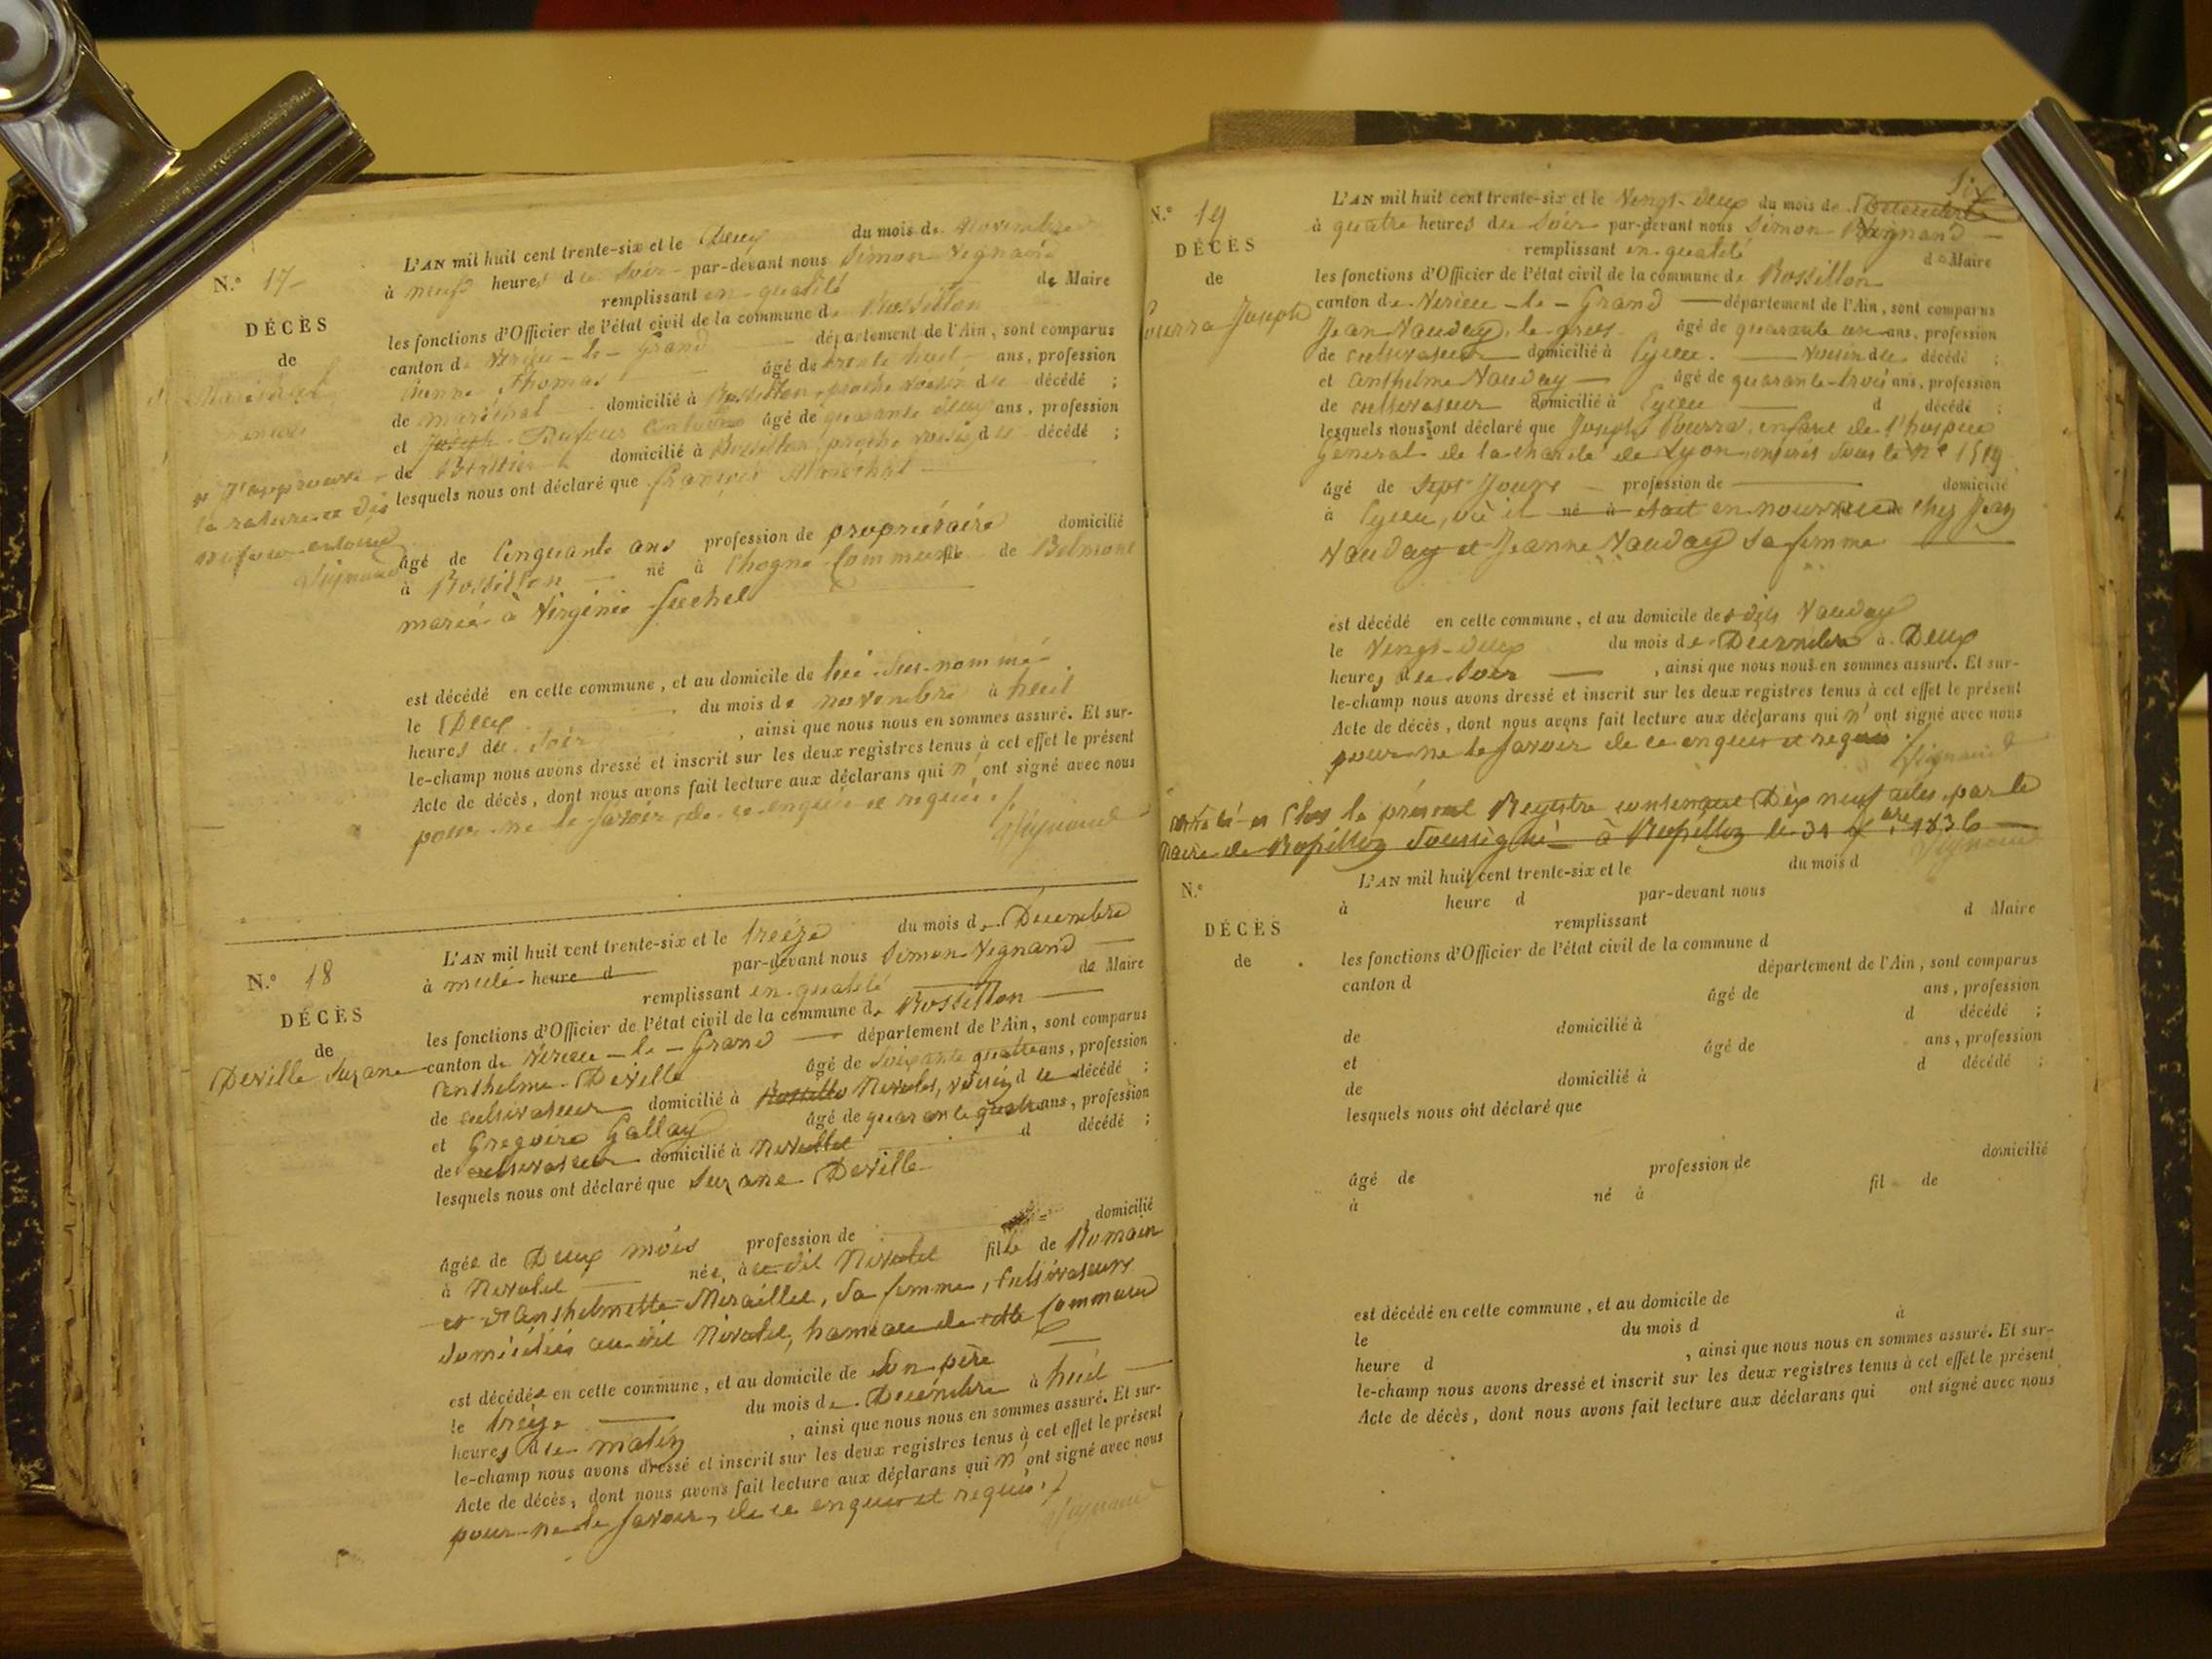 N.° 17
DÉCÈS
de
Maréchal
François
L'AN mil huit cent trente-six et le Deux du mois de novembre
à neuf heures du Soir par-devant nous Simon Vignand
remplissant en qualité de Maire
les fonctions d'Officier de l'état civil de la commune de Rossillon
canton de Virieu-le-Grand département de l'Ain, sont comparus
Thomas âgé de trente huit ans, profession
de maréchal domicilié à Rossillon, proche voisin du décédé ;
et Joseph Dufour Antoine âgé de quarante deux ans, profession
de domicilié à Rossillon proche voisin du décédé ;
lesquels nous ont déclaré que François Maréchal
J'approuve
la rature et dis
Dufour antoine
Vignand
âgé de Cinquante ans profession de propriétaire domicilié
à Rossillon né à Chogne Commune de Belmont
marié à Virginie
est décédé en cette commune, et au domicile de lui Sus-nommé
le Deux du mois de novembre à huit
heures du Soir , ainsi que nous nous en sommes assuré. Et sur-
le-champ nous avons dressé et inscrit sur les deux registres tenus à cet effet le présent
Acte de décès, dont nous avons fait lecture aux déclarans qui n'ont signé avec nous
pour ne le savoir, de ce enquis et requis ./.
Vignand
N.° 18
DÉCÈS
de
Deville Suzane
L'AN mil huit cent trente-six et le treize du mois de Decembre
à midi heure d par-devant nous Simon Vignand
remplissant en qualité de Maire
les fonctions d'Officier de l'état civil de la commune de Rossillon
canton de Virieu-le-Grand département de l'Ain, sont comparus
Anthelme Deville âgé de Soixante quatre ans, profession
de cultivateur domicilié à Rossillo Nivolet, voisin d la décédé ;
et Gregoire Gallay âgé de quarante quatre ans, profession
de cultivateur domicilié à Nivollet d décédé ;
lesquels nous ont déclaré que Suzane Deville
âgée de Deux mois profession de domicilié
à Nivolet née, à au dit Nivolet fille de Romain
et d'Anthelmette Miraillet, Sa femme, Cultivateurs
domiciliés au dit Nivolet, hameau de cette Commune
est décédée en cette commune, et au domicile de Son père
le treize du mois de Decembre à huit
heures du matin , ainsi que nous nous en sommes assuré. Et sur-
le-champ nous avons dressé et inscrit sur les deux registres tenus à cet effet le présent
Acte de décès, dont nous avons fait lecture aux déclarans qui n'ont signé avec nous
pour ne le savoir, de ce enquis et requis ./.
Vignand
Six
N.° 19
DÉCÈS
de
Pourra Joseph
L'AN mil huit cent trente-six et le Vingt-deux du mois de Décembre
à quatre heures du Soir par-devant nous Simon Vignand
remplissant en qualité de Maire
les fonctions d'Officier de l'état civil de la commune de Rossillon
canton de Virieu-le-Grand département de l'Ain, sont comparus
Jean Nauday, le gros âgé de quarante un ans, profession
de cultivateur domicilié à Eyeu. Voisin du décédé ;
et Anthelme Nauday âgé de quarante-trois ans, profession
de cultivateur domicilié à Eyeu d décédé ;
lesquels nous ont déclaré que Joseph Pourra, enfant de l'hospice
Général de la charité de Lyon inscrit sous le n° 1519
âgé de Sept Jours profession de domicilié
à Eyeu, où il né à était en nourrice chez Jean
Nauday et Jeanne Nauday Sa femme
est décédé en cette commune, et au domicile des dits Nauday
le Vingt-deux du mois de Decembre à Deux
heures du Soir , ainsi que nous nous en sommes assuré. Et sur-
le-champ nous avons dressé et inscrit sur les deux registres tenus à cet effet le présent
Acte de décès, dont nous avons fait lecture aux déclarans qui n'ont signé avec nous
pour ne le Savoir de ce enquis et requis ./.
Vignand
Arrêté et Clos le présent Registre contenant Dix neuf actes par le
Maire de Rossillon Soussigné à Rossillon le 31 Xbre 1836
Vignand
N.°
DÉCÈS
de
L'AN mil huit cent trente-six et le du mois d
à heure d par-devant nous
remplissant d Maire
les fonctions d'Officier de l'état civil de la commune d
canton d département de l'Ain, sont comparus
âgé de ans, profession
de domicilié à d décédé ;
et âgé de ans, profession
de domicilié à d décédé ;
lesquels nous ont déclaré que
âgé de profession de domicilié
à né à fil de
est décédé en cette commune, et au domicile de
le du mois d à
heure d , ainsi que nous nous en sommes assuré. Et sur-
le-champ nous avons dressé et inscrit sur les deux registres tenus à cet effet le présent
Acte de décès, dont nous avons fait lecture aux déclarans qui ont signé avec nous